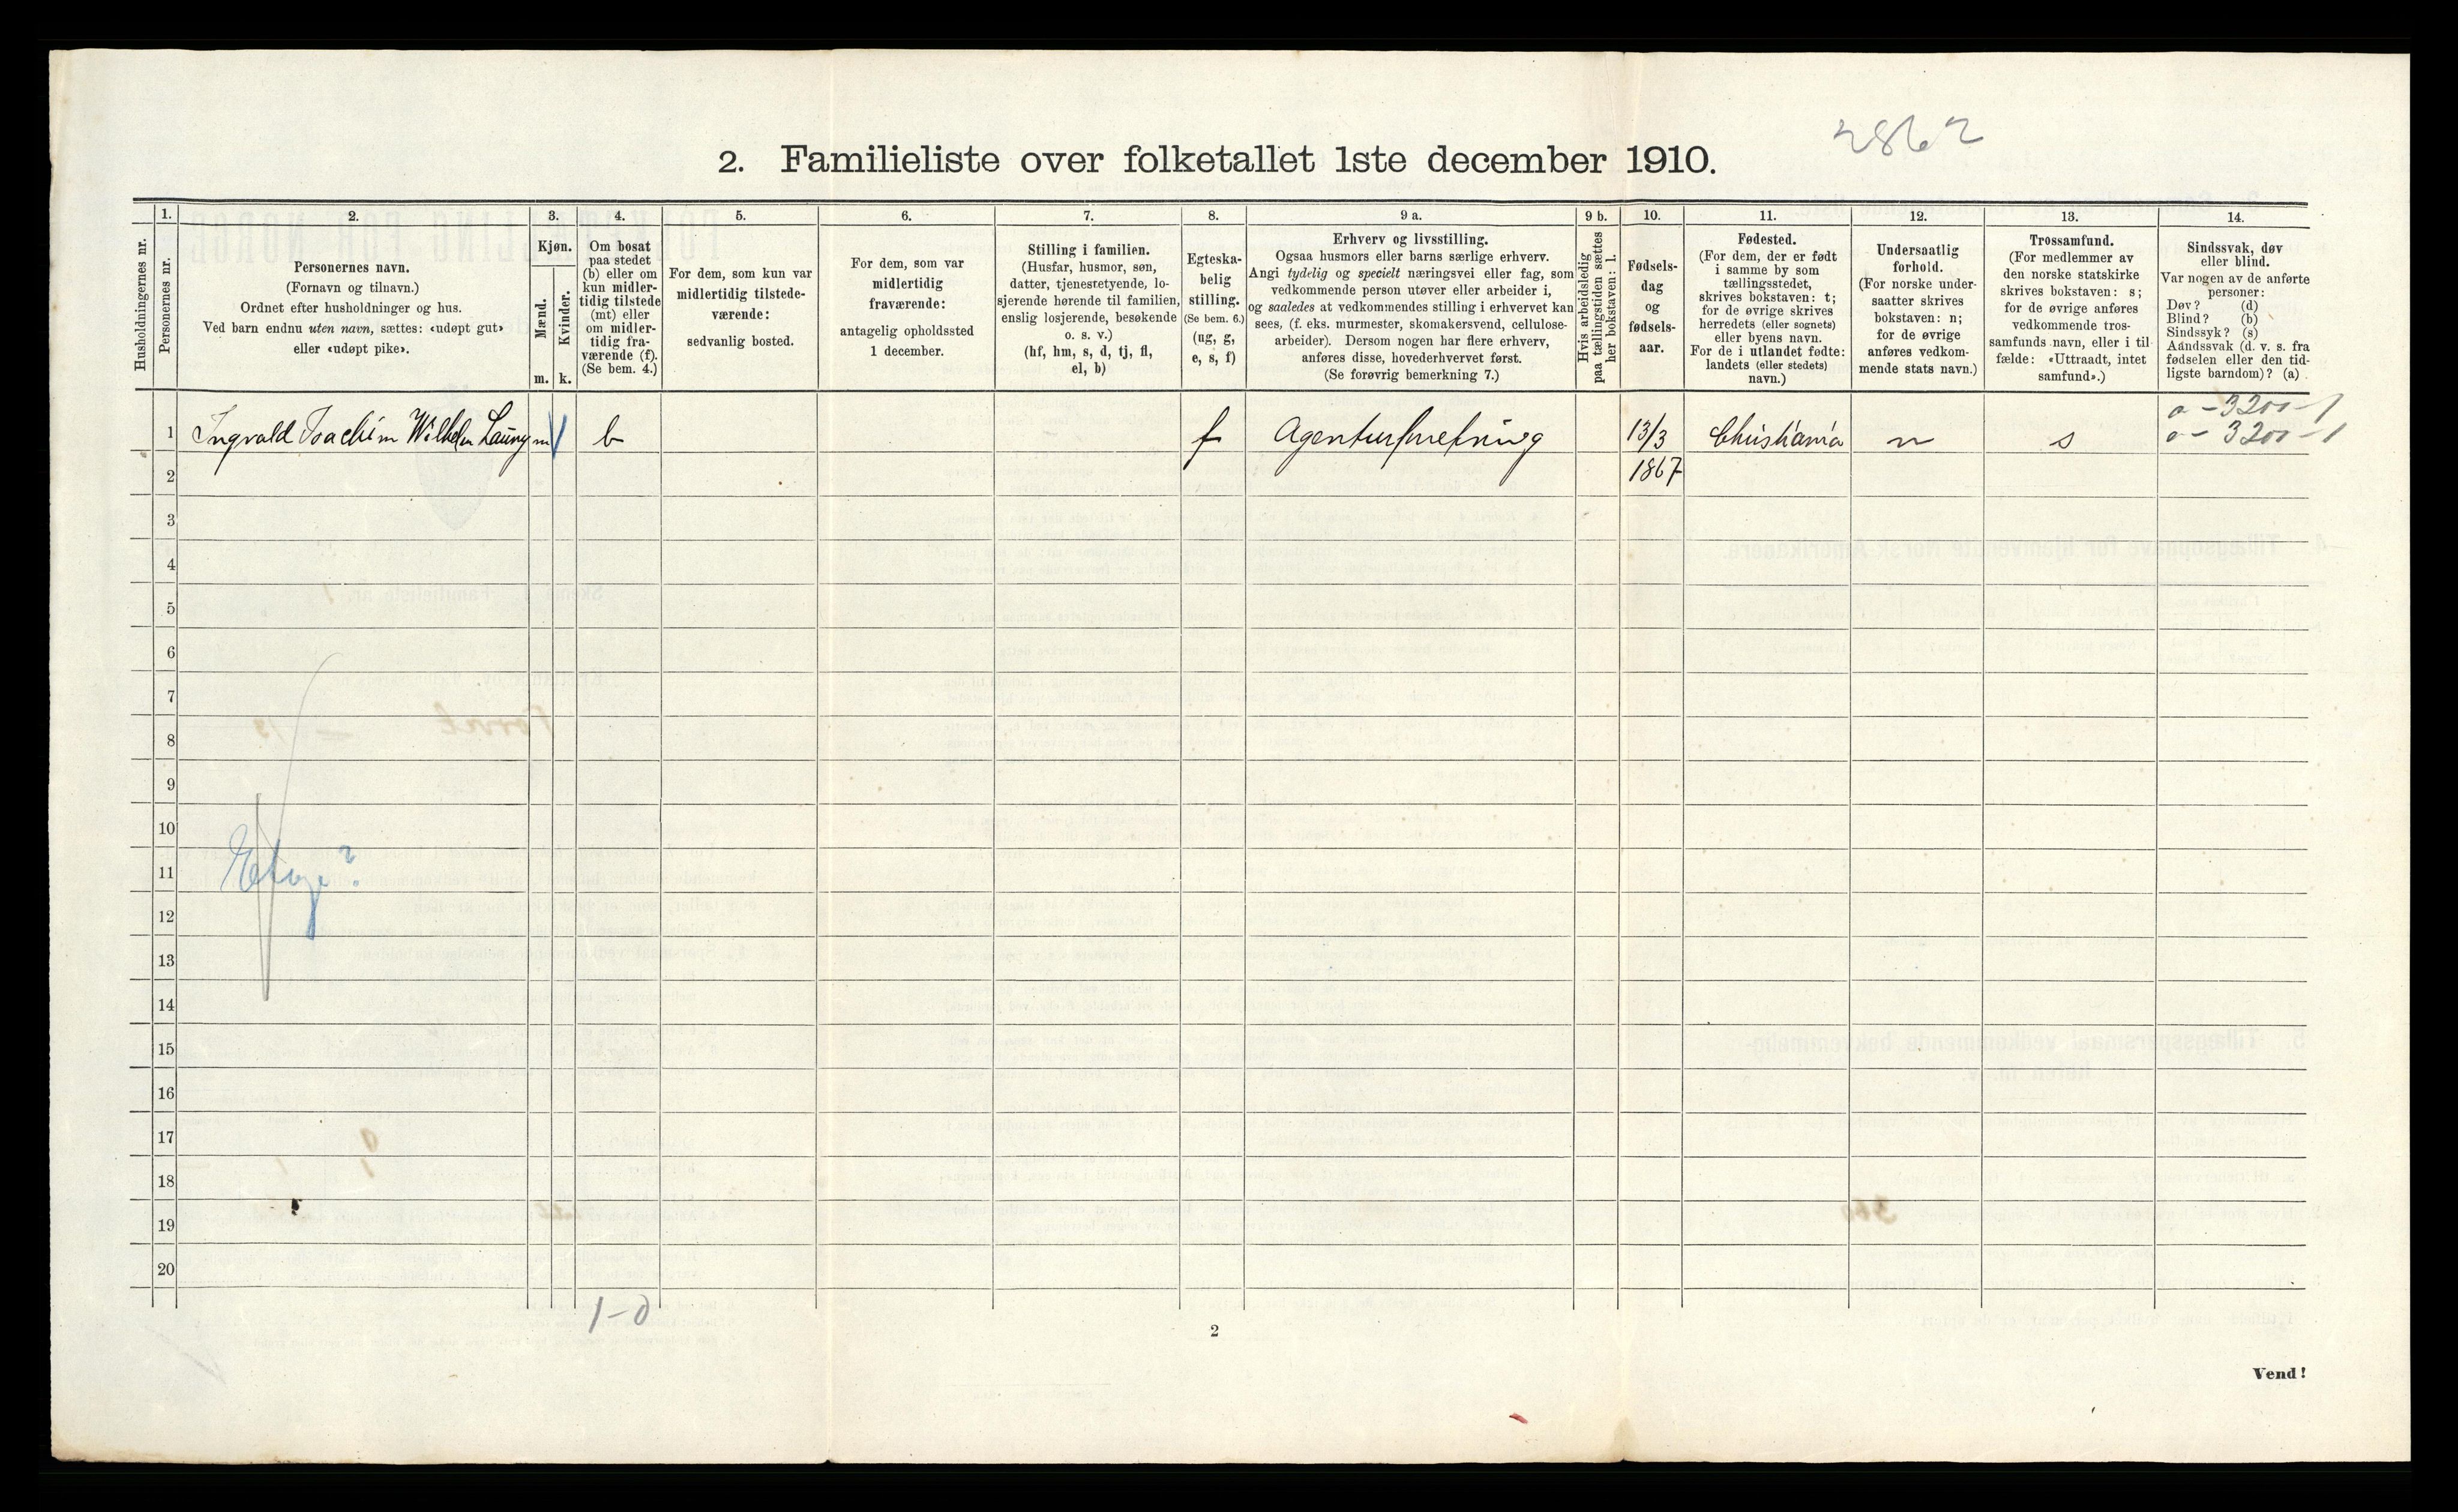 2862
2. Familieliste over folketallet 1ste december 1910.
Husholdningernes nr.
1.
Personernes nr.
2.
Personernes navn.
(Fornavn og tilnavn.)
Ordnet efter husholdninger og hus.
Ved barn endnu uten navn, sættes: «udøpt gut»
eller «udøpt pike».
3.
Kjøn.
Mænd.
Kvinder.
m. k.
4.
Om bosat
paa stedet
(b) eller om
kun midler-
tidig tilstede
(mt) eller
om midler-
tidig fra-
værende (f).
(Se bem. 4.)
5.
For dem, som kun var
midlertidig tilstede-
værende:
sedvanlig bosted.
6.
For dem, som var
midlertidig
fraværende:
antagelig opholdssted
1 december.
7.
Stilling i familien.
(Husfar, husmor, søn,
datter, tjenestetyende, lo-
sjerende hørende til familien,
enslig losjerende, besøkende
o. s. v.)
(hf, hm, s, d, tj, fl,
el, b)
8.
Egteska-
belig
stilling.
(Se bem. 6.)
(ug, g,
e, s, f)
9 a.
Erhverv og livsstilling.
Ogsaa husmors eller barns særlige erhverv.
Angi tydelig og specielt næringsvei eller fag, som
vedkommende person utøver eller arbeider i,
og saaledes at vedkommendes stilling i erhvervet kan
sees, (f. eks. murmester, skomakersvend, cellulose-
arbeider). Dersom nogen har flere erhverv,
anføres disse, hovederhvervet først.
(Se forøvrig bemerkning 7.)
9 b.
Hvis arbeidsledig
paa tællingstiden sættes
her bokstaven: l.
10.
Fødsels-
dag
og
fødsels-
aar.
11.
Fødested.
(For dem, der er født
i samme by som
tællingsstedet,
skrives bokstaven: t;
for de øvrige skrives
herredets (eller sognets)
eller byens navn.
For de i utlandet fødte:
landets (eller stedets)
navn.)
12.
Undersaatlig
forhold.
(For norske under-
saatter skrives
bokstaven: n;
for de øvrige
anføres vedkom-
mende stats navn.)
13.
Trossamfund.
(For medlemmer av
den norske statskirke
skrives bokstaven: s;
for de øvrige anføres
vedkommende tros-
samfunds navn, eller i til-
fælde: «Uttraadt, intet
samfund».)
14.
Sindssvak, døv
eller blind.
Var nogen av de anførte
personer:
Døv? (d)
Blind? (b)
Sindssyk? (s)
Aandssvak (d. v. s. fra
fødselen eller den tid-
ligste barndom)? (a)
o - 3200 - 1
1 Ingvald Joachim Wilhelm m b f Agenturforretning 13/3 Christiania n s o - 3200 - 1
2 1867
3
4
5
6
7
8
9
10
11 Etage?
12
13
14
15
16
17
18
19
20
1-0
2
Vend!